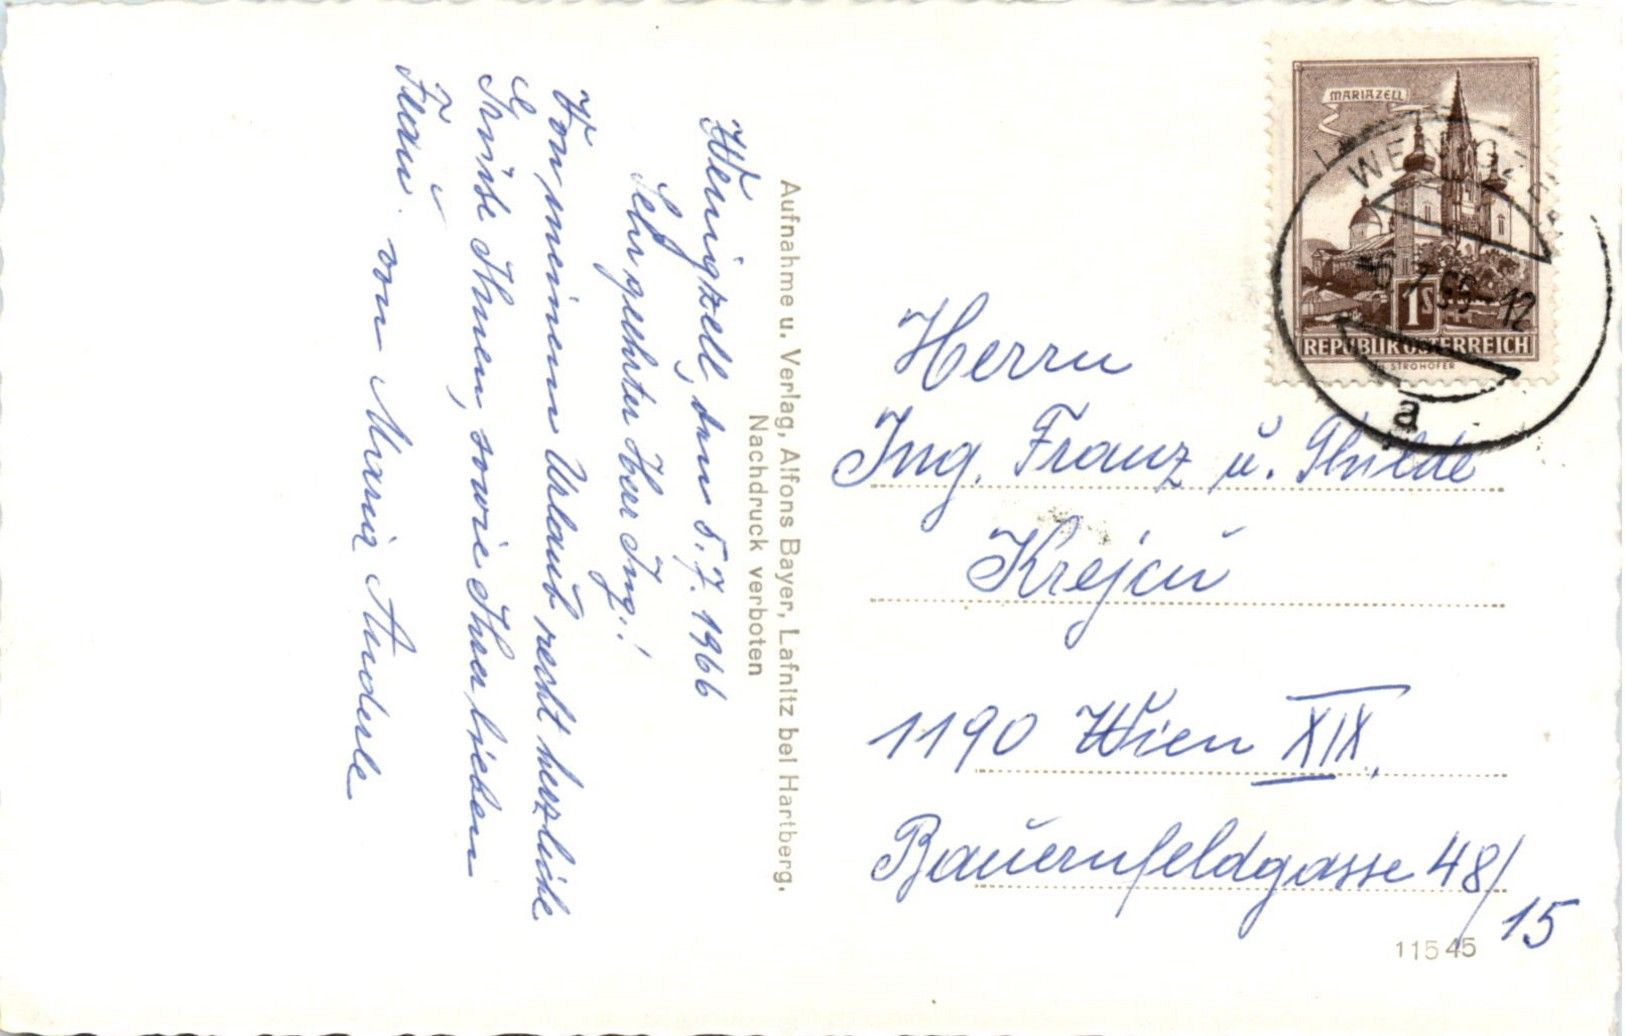 Wenigzell, den 5.7.1966
Sehr geehrter Herr Ing.!
Von meinem Urlaub recht herzliche
Grüße Ihnen, sowie Ihrer lieben
Frau von Maria
Aufnahme u. Verlag, Alfons Bayer, Lafnitz bei Hartberg.
Nachdruck verboten
MARIAZELL
1S
REPUBLIK ÖSTERREICH
STROHOFER
a
Herrn
Ing. Franz u.
1190 Wien XIX.
Bauernfeldgasse 48/
15
11545